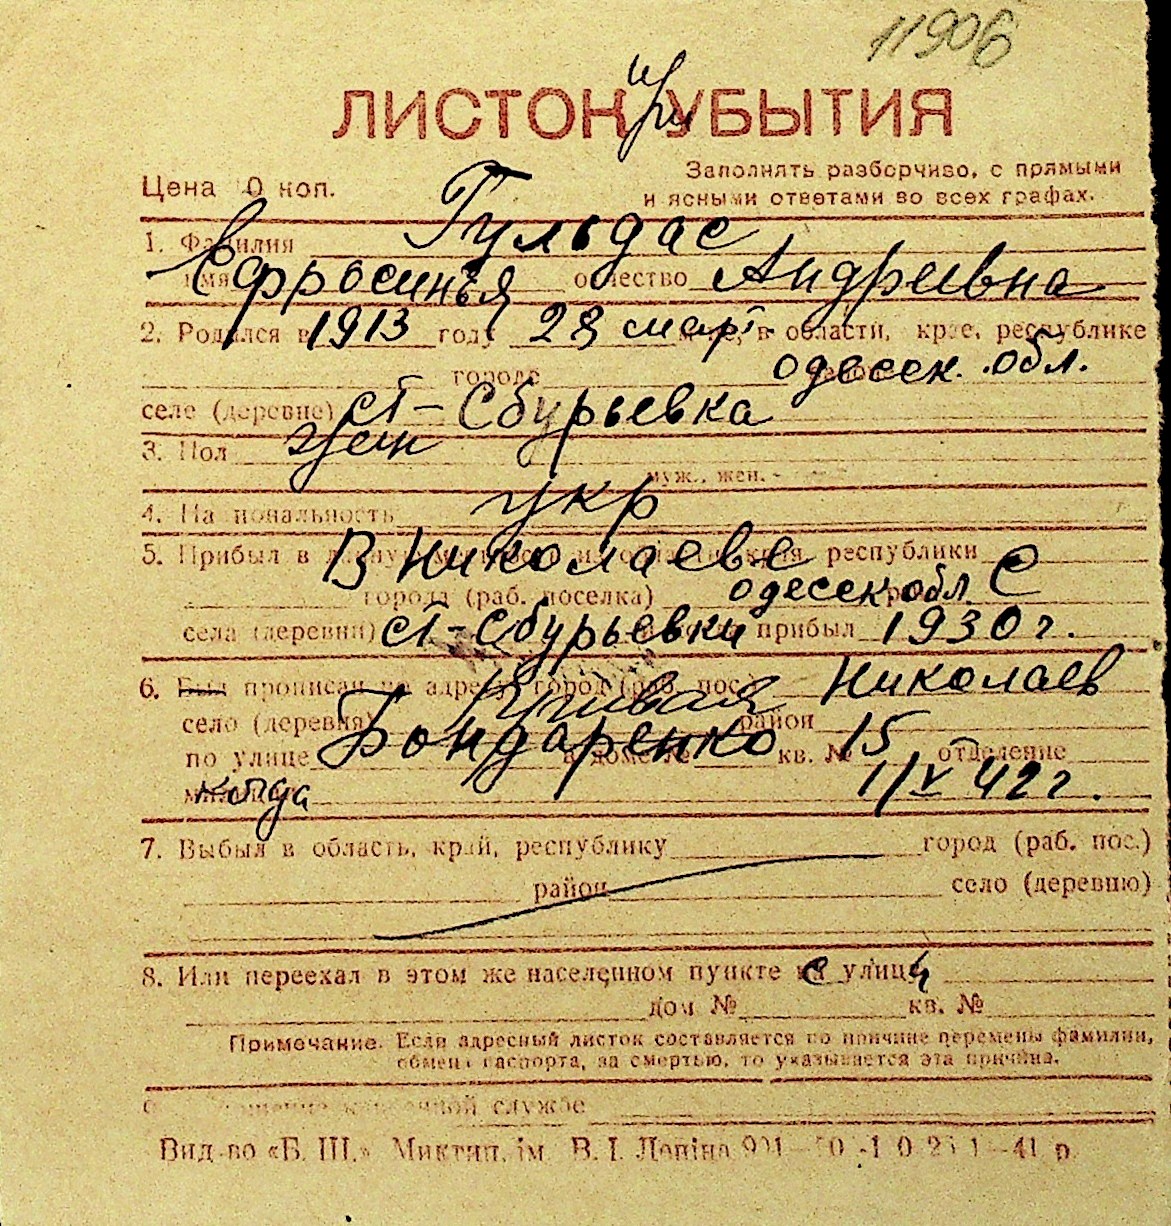 11906
ЛИСТОК при УБЫТИЯ
Цена 10 коп.
Заполнять разборчиво, с прямыми
и ясными ответами во всех графах.
1. Фамилия Гульдас
имя Ефросинья отчество Андреевна
2. Родился в 1913 году 28 март м-це, в области, крае, республике
города районе одесск. обл.
селе (деревне) ст-Сбурьевка
3. Пол жен
муж., жен.
4. Национальность укр
5. Прибыл в В Николаеве края республики
города (раб. поселка) одесск обл С
села (деревни) ст-Сбурьевки прибыл 1930 г.
6. Был прописан по адресу: город (раб. пос.) Николаев
село (деревня) район
по улице Бондаренко в доме № 15 кв. № отделение
милиции когда 1/V 42 г.
7. Выбыл в область, край, республику город (раб. пос.)
район село (деревню)
8. Или переехал в этом же населенном пункте с улицы
дом № кв. №
Примечание. Если адресный листок составляется по причине перемены фамилии,
обмена паспорта, за смертью, то указывается эта причина.
службе
Вид-во «Б. Ш.» Миктип. ім. В. І. Леніна 41 р.